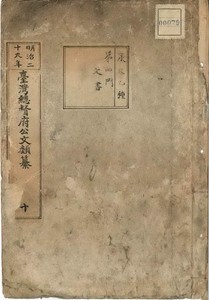 00072
永久乙種
第 門
文書
明治二
十九年
臺灣總督府公文類纂
十